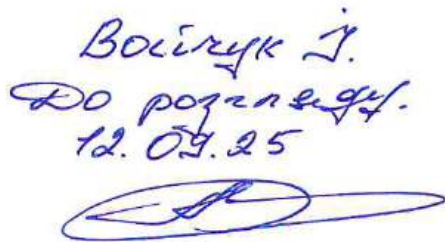 Войчук Й.
До розгляду.
12.09.25